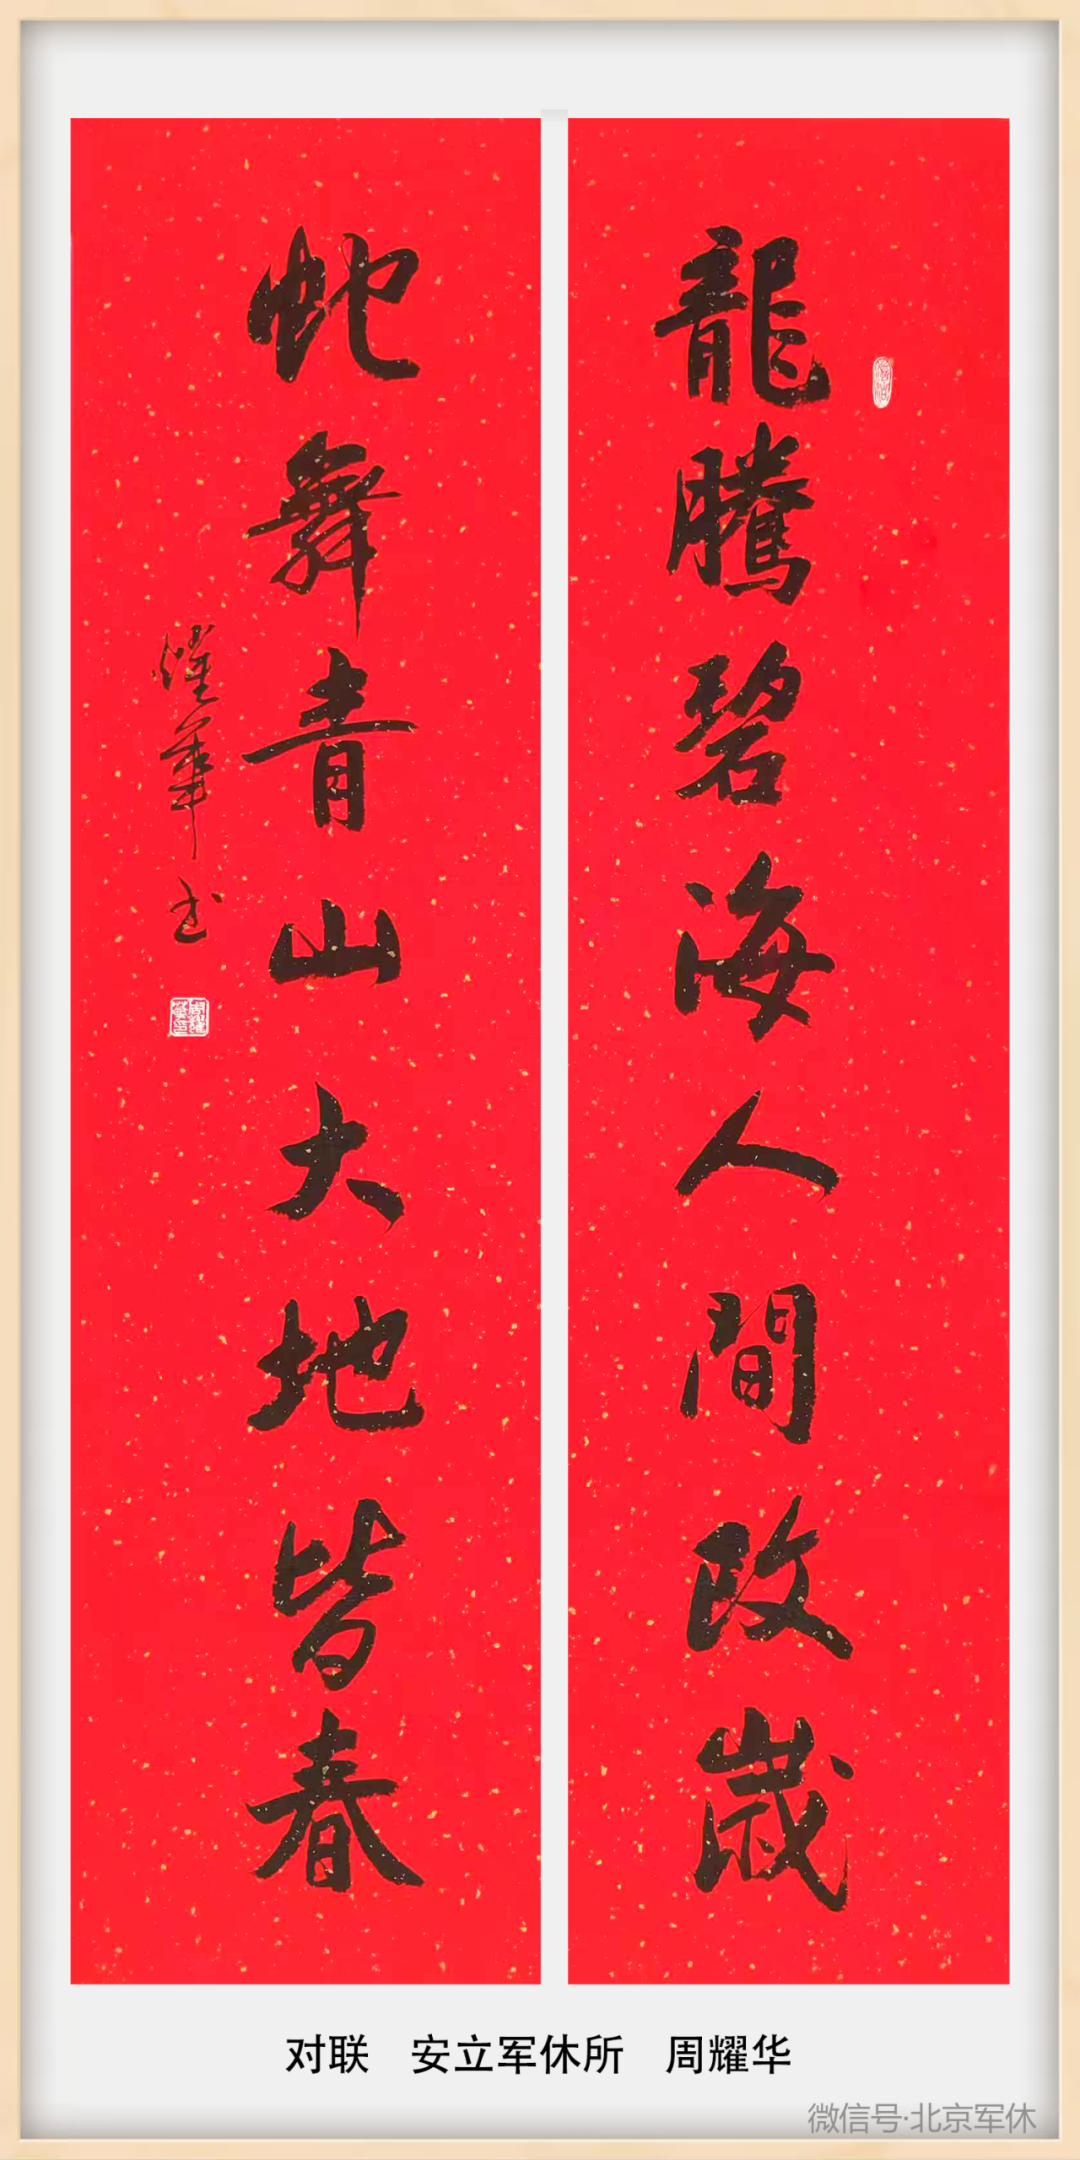 龍騰碧海人間改歲
虵舞青山大地皆春
耀華书
周耀華印
对联 安立军休所 周耀华
微信号·北京军休